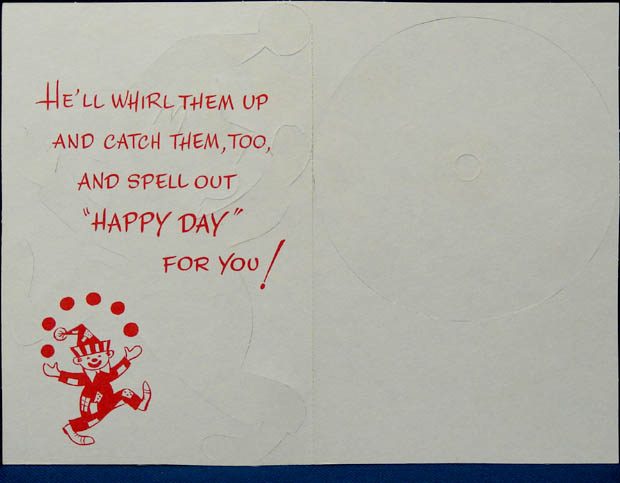 HE'LL WHIRL THEM UP
AND CATCH THEM, TOO,
AND SPELL OUT
"HAPPY DAY"
FOR YOU!